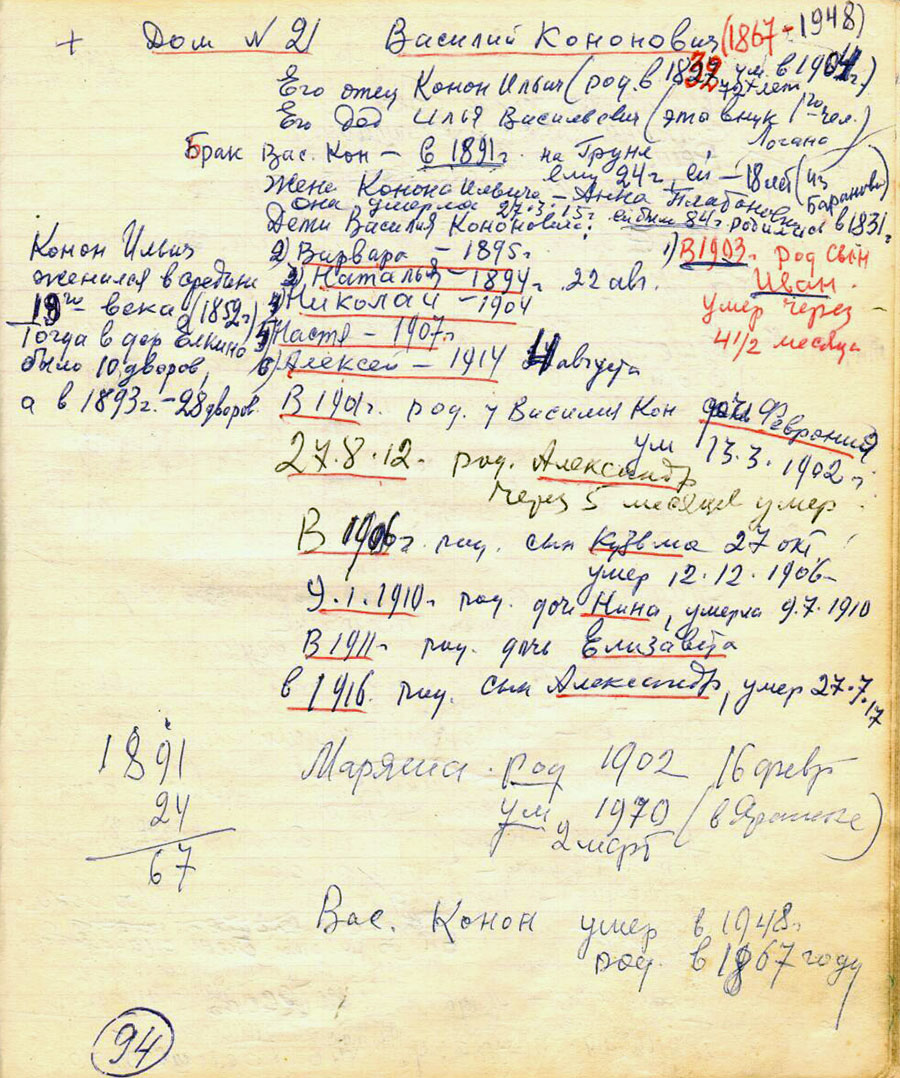 + Дом № 21 Василий Кононович (1867 - 1948)
Его отец Конон Ильич (род. в 1832 ум. в 1904 г.)
72 лет
Его дед Илья Васильевич (это внук 1го чел.
Логана
Брак Вас. Кон – в 1891 г. на Груне
ему 24 г, ей – 18 лет (из
Баранова)
Жена Конона Ильича – Анна Платоновна
она умерла 27.3.15 г. ей было 84 г. родилась в 1831 г.
Дети Василия Кононовича:
2) Варвара – 1895 г.
3) Наталья – 1894 г. 22 авг.
4) Николай – 1904
5) Настя – 1907 г.
6) Алексей – 1914 4 августа
1) В 1903 г. род сын
Иван.
умер через
4 1/2 месяца
Конон Ильич
женился в средине
19го – века (1852 г)
Тогда в дер Елкино
было 10 дворов,
а в 1893 г. – 28 дворов.
В 1901 г. род. у Василия Кон дочь Феврония
ум 13.3.1902 г.
27.8.12. род. Александр
через 5 месяцев умер.
В 1906 г. род. сын Кузьма 27 окт
умер 12.12.1906
9.1.1910 г. род. дочь Нина, умерла 9.7.1910
В 1911 г. род. дочь Елизавета
в 1916. род. сын Александр, умер 27.7.17
Маряша. род 1902 16 февр
ум. 1970 (в Яранске)
2 март
1891
24
67
Вас. Конон умер в 1948 г.
род. в 1867 году
94